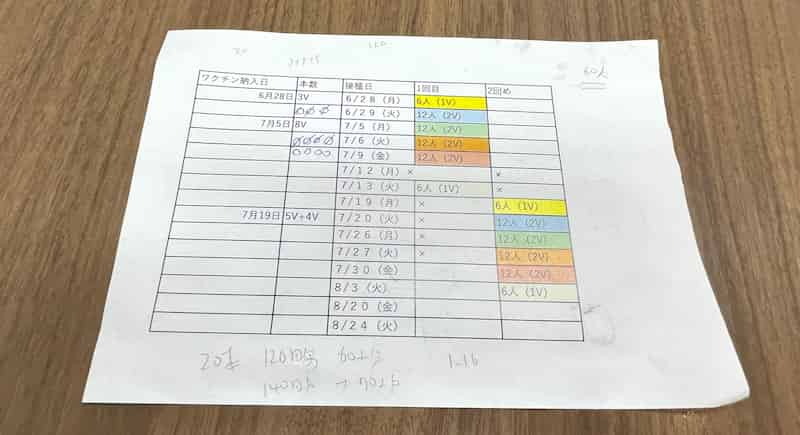 60人
ワクチン納入日 本数 接種日 1回目 2回め
6月28日 3V 6/28（月） 6人（1V）
6/29（火） 12人（2V）
7月5日 8V 7/5（月） 12人（2V）
7/6（火） 12人（2V）
7/9（金） 12人（2V）
7/12（月） × ×
7/13（火） 6人（1V） ×
7/19（月） × 6人（1V）
7月19日 5V+4V 7/20（火） × 12人（2V）
7/26（月） × 12人（2V）
7/27（火） × 12人（2V）
7/30（金） 12人（2V）
8/3（火） 6人（1V）
8/20（金）
8/24（火）
20本 120回分
140回分